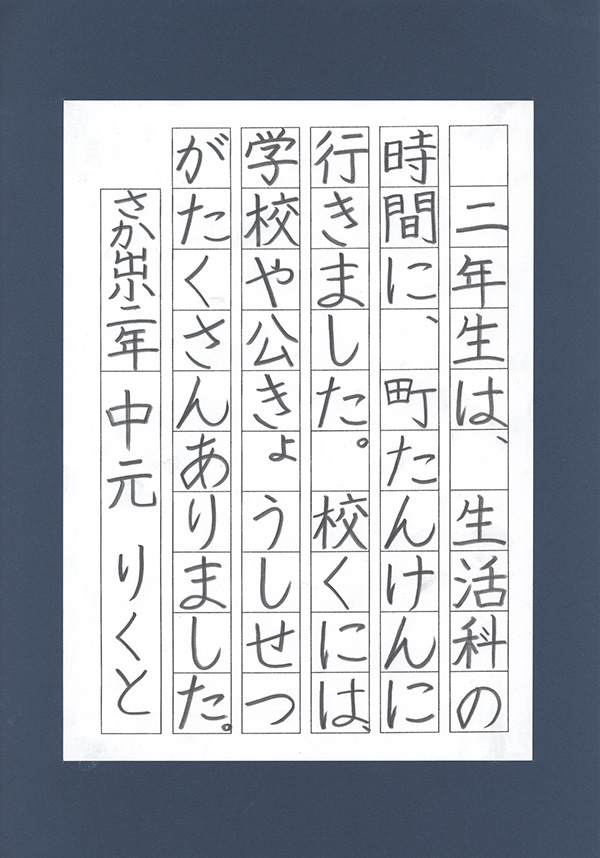 二年生は、生活科の
時間に、町たんけんに
行きました。校くには、
学校や公きょうしせつ
がたくさんありました。
さか出小二年 中元 りくと